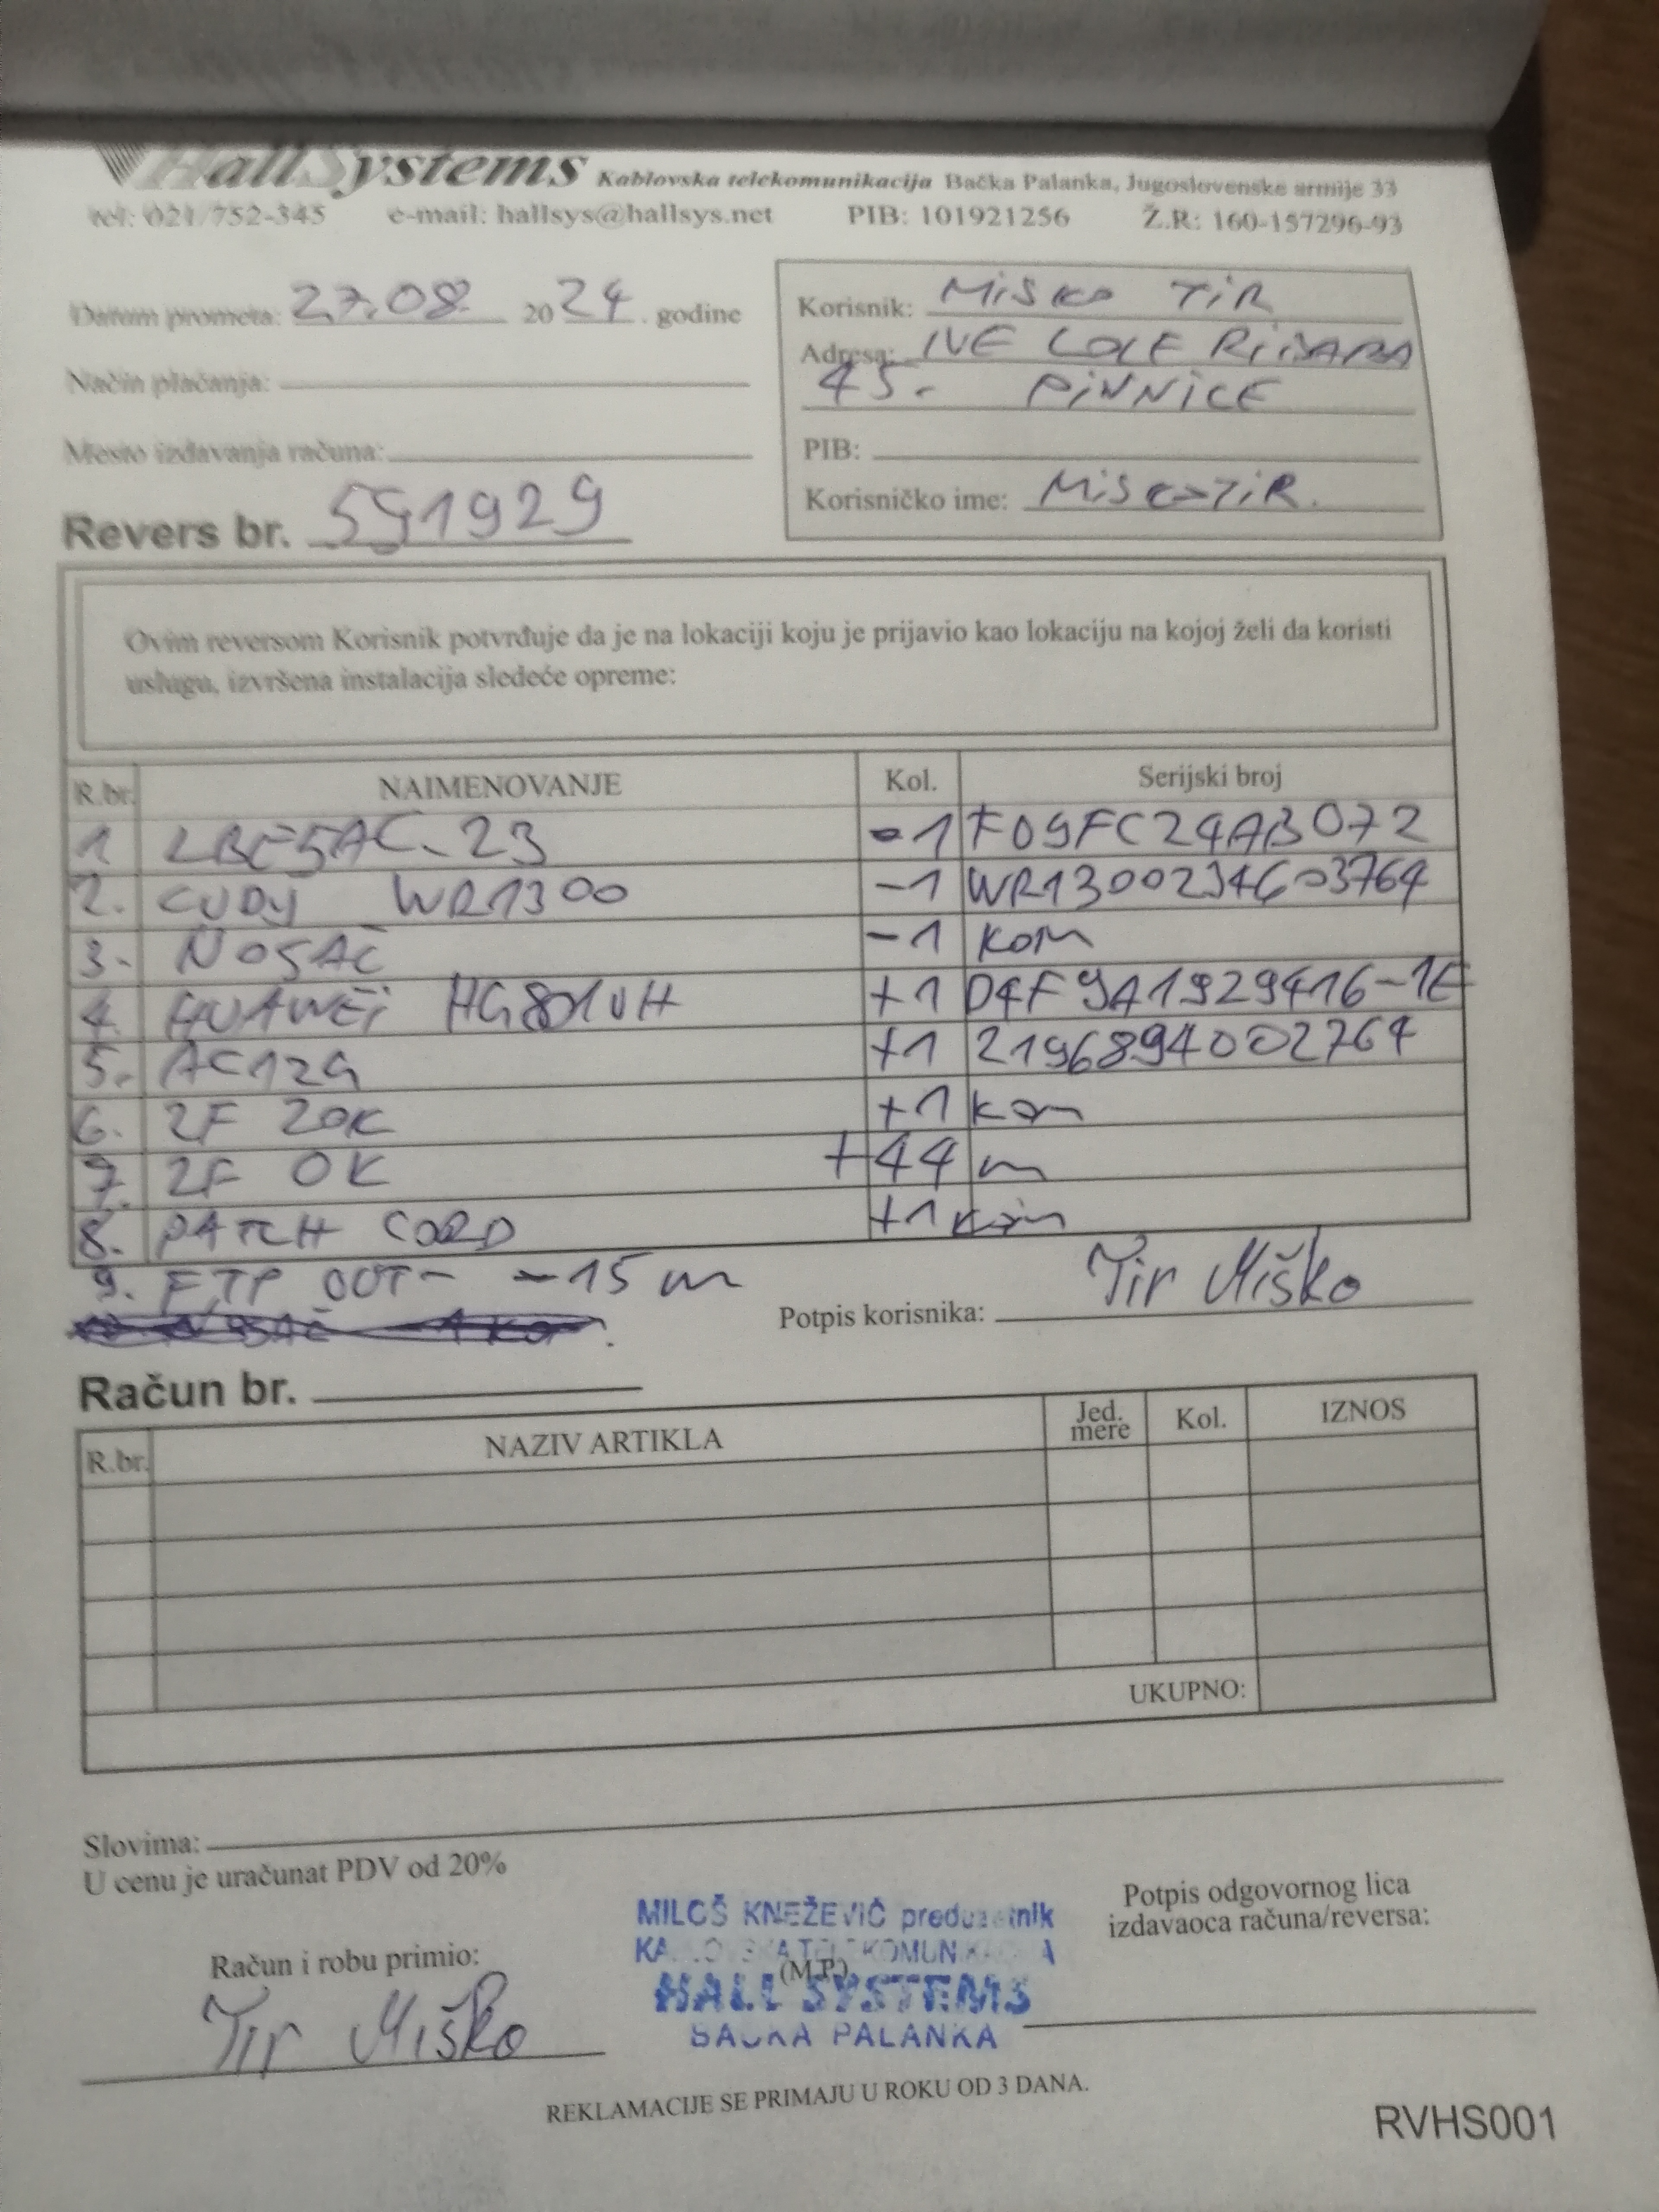 HallSystems Kablovska telekomunikacija Bačka Palanka, Jugoslovenske armije 33
tel: 021/752-345 e-mail: hallsys@hallsys.net PIB: 101921256 Ž.R: 160-157296-93
Datum prometa: 27.08 2024. godine
Način plaćanja:
Mesto izdavanja računa:
Revers br. 591929
Korisnik: MiSKO TiR
Adresa: IVE LOLE RIBARA
45. PiVNiCE
PIB:
Korisničko ime: MiSKOTiR.
Ovim reversom Korisnik potvrđuje da je na lokaciji koju je prijavio kao lokaciju na kojoj želi da koristi
uslugu, izvršena instalacija sledeće opreme:
R.br. NAIMENOVANJE Kol. Serijski broj
1 LBE5AC-23 -1 F09FC24AB072
2. CUDY WR1300 -1 WR1300234603764
3. NOSAČ -1 KOM
4. HUAWEi HG8010H +1 D4F9A1929416-1E
5. AC12G +1 2196894002764
6. 2F ZOK +1 kom
7. 2F OK +44 m
8. PATCH CORD +1 kom
9. FTP OUT- -15 m
Potpis korisnika: Tir Miško
Račun br.
R.br. NAZIV ARTIKLA Jed. mere Kol. IZNOS
UKUPNO:
Slovima:
U cenu je uračunat PDV od 20%
Račun i robu primio:
Tir Miško
MILOŠ KNEŽEVIĆ preduzetnik
KABLOVSKA TELEKOMUNIKACIJA
(M.P.)
HALL SYSTEMS
BAČKA PALANKA
Potpis odgovornog lica
izdavaoca računa/reversa:
REKLAMACIJE SE PRIMAJU U ROKU OD 3 DANA.
RVHS001